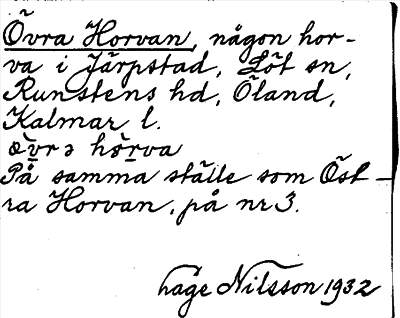 Övra Horvan, någon hor-
va i Järpstad, Löt sn,
Runstens hd, Öland,
Kalmar l.
øv̲rə hor̲va
På samma ställe som Öst-
ra Horvan, på nr 3.
hage Nilsson 1932